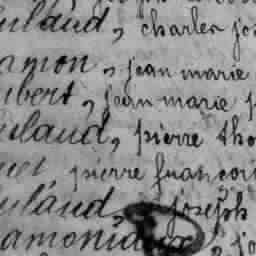 ulaud, charles jos
amon, jean marie
ubert, jean marie p
ulaud, pierre tho
uet, pierre françoi
ulaud, joseph
amoniaux, jo